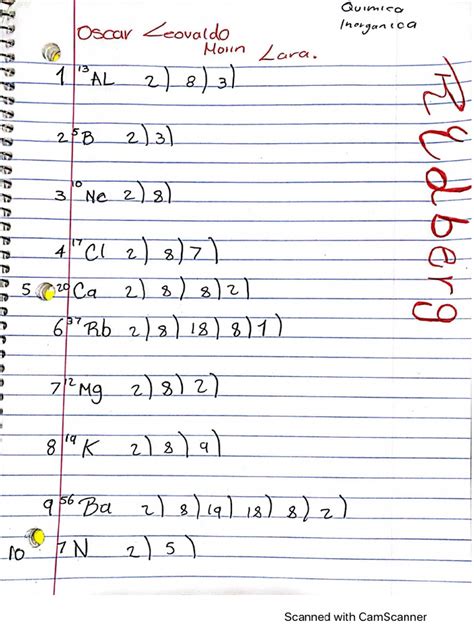 Quimica
Inorganica
Oscar Leovaldo
Moiin Lara.
Rydberg
1 ¹³AL 2) 8) 3)
2 ⁵B 2) 3)
3 ¹⁰Ne 2) 8)
4 ¹⁷Cl 2) 8) 7)
5 ²⁰Ca 2) 8) 8) 2)
6 ³⁷Rb 2) 8) 18) 8) 1)
7 ¹²Mg 2) 8) 2)
8 ¹⁹K 2) 8) 9)
9 ⁵⁶Ba 2) 8) 19) 18) 8) 2)
10 ⁷N 2) 5)
Scanned with CamScanner